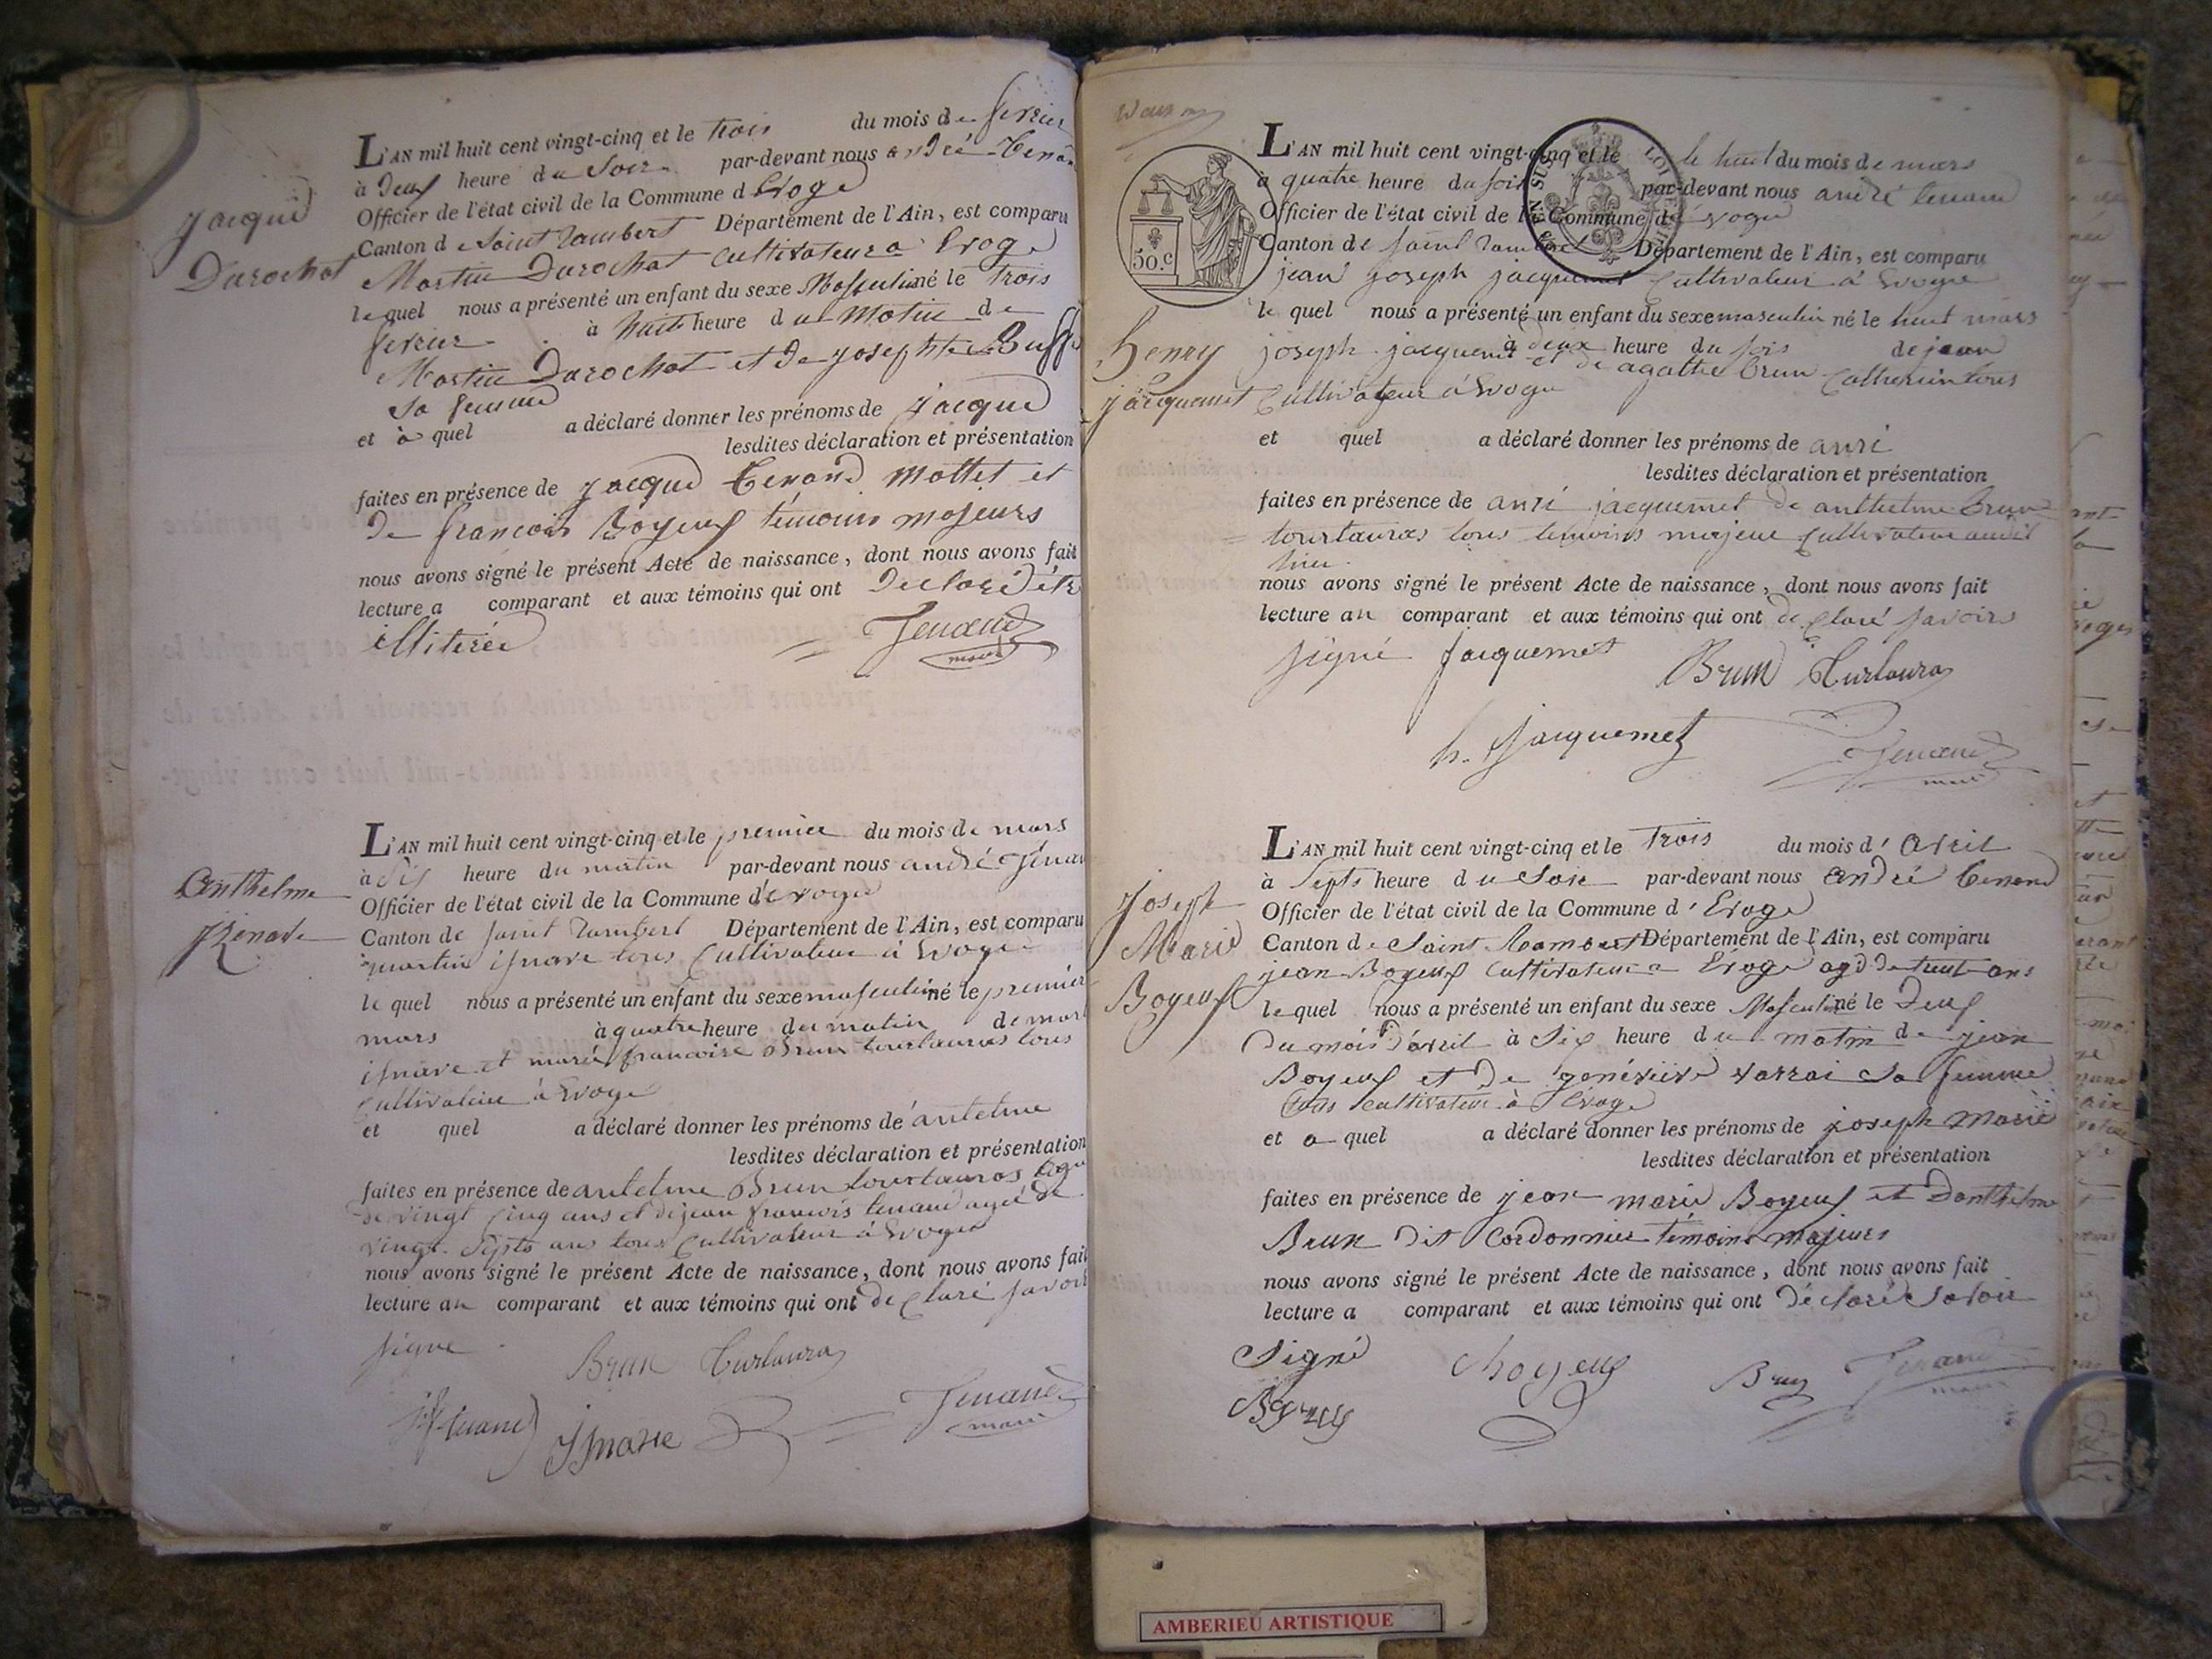 Jacque
Durochat
L'AN mil huit cent vingt-cinq et le trois du mois de fevrier
à Deux heure du Soir par-devant nous andré Tenand
Officier de l'état civil de la Commune d Evoge
Canton de Saint Rambert Département de l'Ain, est comparu
Martin Durochat Cultivateur a Evoge
lequel nous a présenté un enfant du sexe Masculin né le trois
fevrier à huit heure du Matin de
Martin Durochat et de Josephte
Sa femme
et à quel a déclaré donner les prénoms de Jacque
lesdites déclaration et présentation
faites en présence de Jacque Tenand Mottet et
De francois Boyeux témoins majeurs
nous avons signé le présent Acte de naissance, dont nous avons fait
lecture a comparant et aux témoins qui ont Declaré étre
illiterée Tenand
maire
Anthelme
L'AN mil huit cent vingt-cinq et le premier du mois de mars
à dix heure du matin par-devant nous andré Tenan
Officier de l'état civil de la Commune d'évoge
Canton de saint rambert Département de l'Ain, est comparu
martin cultivateur à Evoge
le quel nous a présenté un enfant du sexe masculin né le premier
mars à quatre heure du matin de mart
et marie francoise Brun tourtauras tous
cultivateur à Evoge
et quel a déclaré donner les prénoms de antelme
lesdites déclaration et présentation
faites en présence de antelme Brun tourtauras agé
de vingt cinq ans et de jean francois tenand agé de
vingt-septs ans tous cultivateur à Evoge
nous avons signé le présent Acte de naissance, dont nous avons fait
lecture au comparant et aux témoins qui ont declaré savoir
signe Brun Turtaura
Tenand
maire
50.c
L'AN mil huit cent vingt-cinq et le le huit du mois de mars
a quatre heure du soir par-devant nous andré tenand
Officier de l'état civil de la Commune de évoge
Canton de saint rambert Département de l'Ain, est comparu
jean joseph jacquemet cultivateur à Evoge
le quel nous a présenté un enfant du sexe masculin né le huit mars
Henry
jacquemet
à deux heure du soir de jean
joseph jacquemet et de agathe brun
cultivateur à Evoge
et quel a déclaré donner les prénoms de anri
lesdites déclaration et présentation
faites en présence de anri jacquemet de anthelme brun
tourtauras tous temoins majeur cultivateur audit
lieu.
nous avons signé le présent Acte de naissance, dont nous avons fait
lecture au comparant et aux témoins qui ont declaré savoirs
signé Jacquemet Brun Turtaura
h. Jacquemet Tenand
maire
Joseph
Marie
Boyeux
L'AN mil huit cent vingt-cinq et le Trois du mois d' Avril
à Septs heure du Soir par-devant nous André Tenand
Officier de l'état civil de la Commune d' Evoge
Canton de Saint Rambert Département de l'Ain, est comparu
jean Boyeux Cultivateur a Evoge agé de trente ans
lequel nous a présenté un enfant du sexe Masculin né le Deux
Du mois d'avril à Six heure du matin de jean
Boyeux et de genévieve varrai sa femme
tous cultivateur à Evoge
et a quel a déclaré donner les prénoms de joseph Marie
lesdites déclaration et présentation
faites en présence de jean marie Boyeux et Danthelme
Brun Dit Cordonnier témoins majeurs
nous avons signé le présent Acte de naissance, dont nous avons fait
lecture a comparant et aux témoins qui ont déclaré savoir
Signé Boyeux Brun Tenand
maire
Boyeux
AMBERIEU ARTISTIQUE